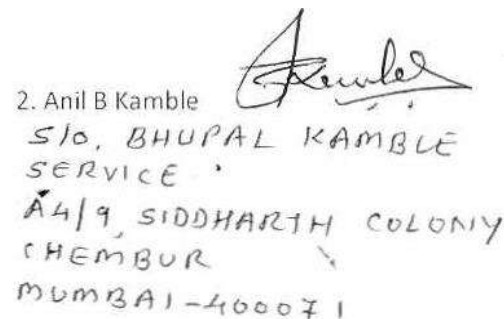 Kamble
2. Anil B Kamble
S/o, BHUPAL KAMBLE
SERVICE
A4/9, SIDDHARTH COLONIY
CHEMBUR
MUMBAI-400071